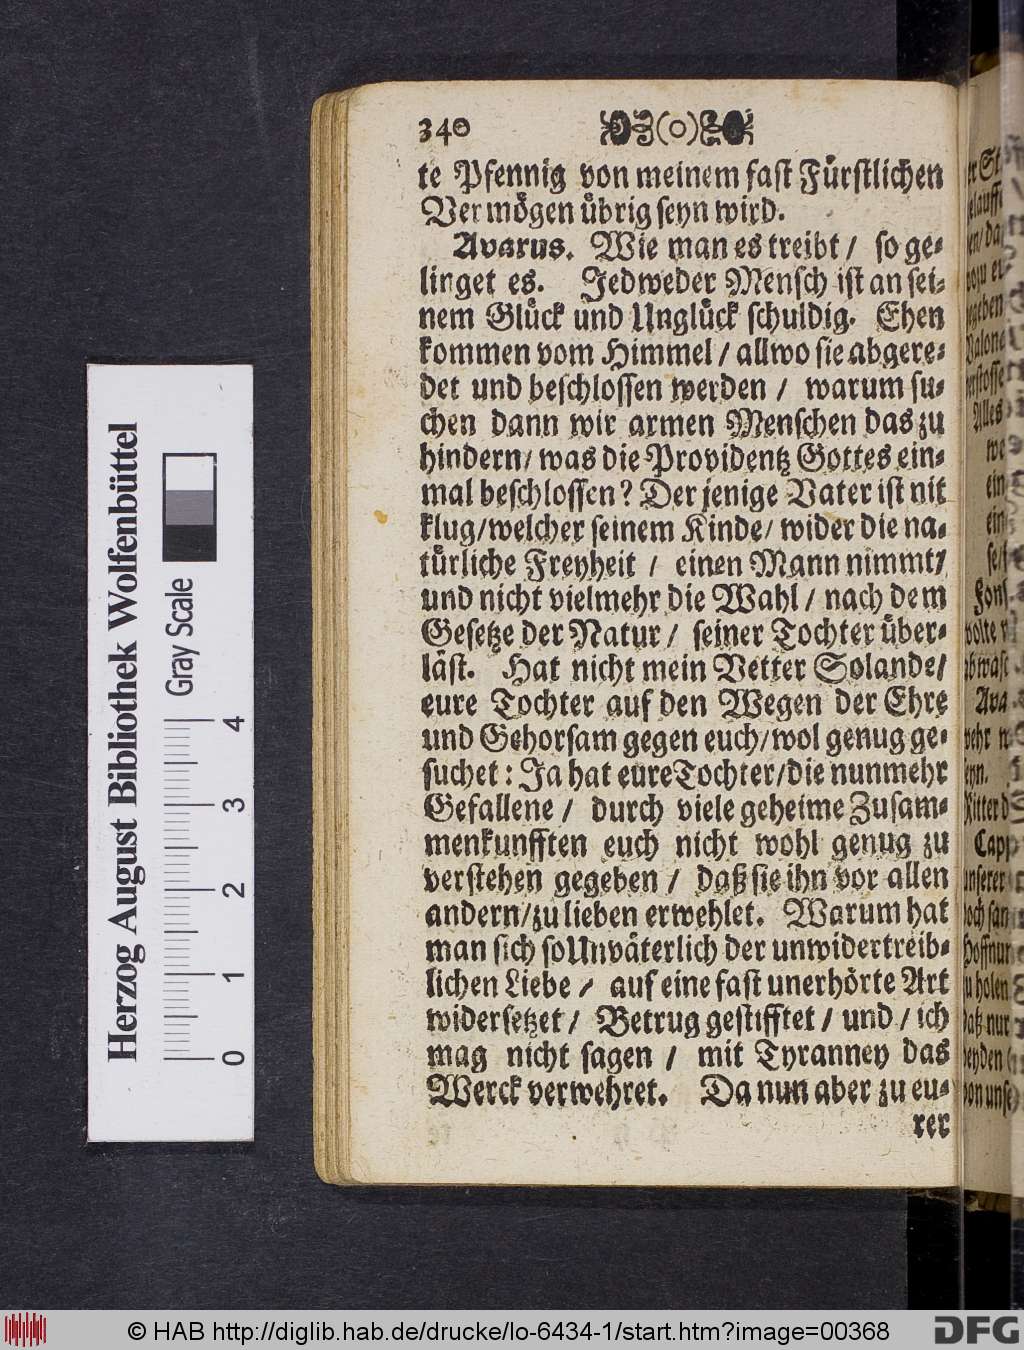 340
te Pfennig von meinem fast Fürstlichen
Vermögen übrig seyn wird.
Avarus. Wie man es treibt / so ge-
linget es. Jedweder Mensch ist an sei-
nem Glück und Unglück schuldig. Ehen
kommen vom Himmel / allwo sie abgere-
det und beschlossen werden / warum su-
chen dann wir armen Menschen das zu
hindern / was die Providentz Gottes ein-
mal beschlossen? Der jenige Vater ist nit
klug / welcher seinem Kinde / wider die na-
türliche Freyheit / einen Mann nimmt /
und nicht vielmehr die Wahl / nach dem
Gesetze der Natur / seiner Tochter über-
läst. Hat nicht mein Vetter Solande /
eure Tochter auf den Wegen der Ehre
und Gehorsam gegen euch / wol genug ge-
suchet: Ja hat eure Tochter / die nunmehr
Gefallene / durch viele geheime Zusam-
menkunfften euch nicht wohl genug zu
verstehen gegeben / daß sie ihn vor allen
andern / zu lieben erwehlet. Warum hat
man sich so Unväterlich der unwidertreib-
lichen Liebe / auf eine fast unerhörte Art
widersetzet / Betrug gestifftet / und / ich
mag nicht sagen / mit Tyranney das
Werck verwehret. Da nun aber zu eu-
rer
Herzog August Bibliothek Wolfenbüttel
Gray Scale
0 1 2 3 4
© HAB http://diglib.hab.de/drucke/lo-6434-1/start.htm?image=00368
DFG